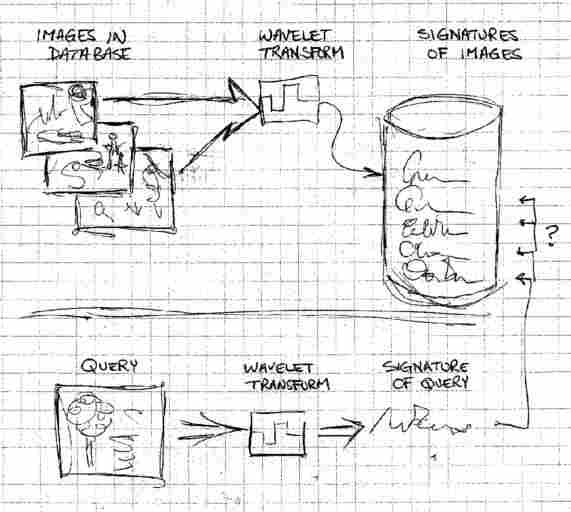 IMAGES IN
DATABASE
WAVELET
TRANSFORM
SIGNATURES
OF IMAGES
?
QUERY
WAVELET
TRANSFORM
SIGNATURE
OF QUERY